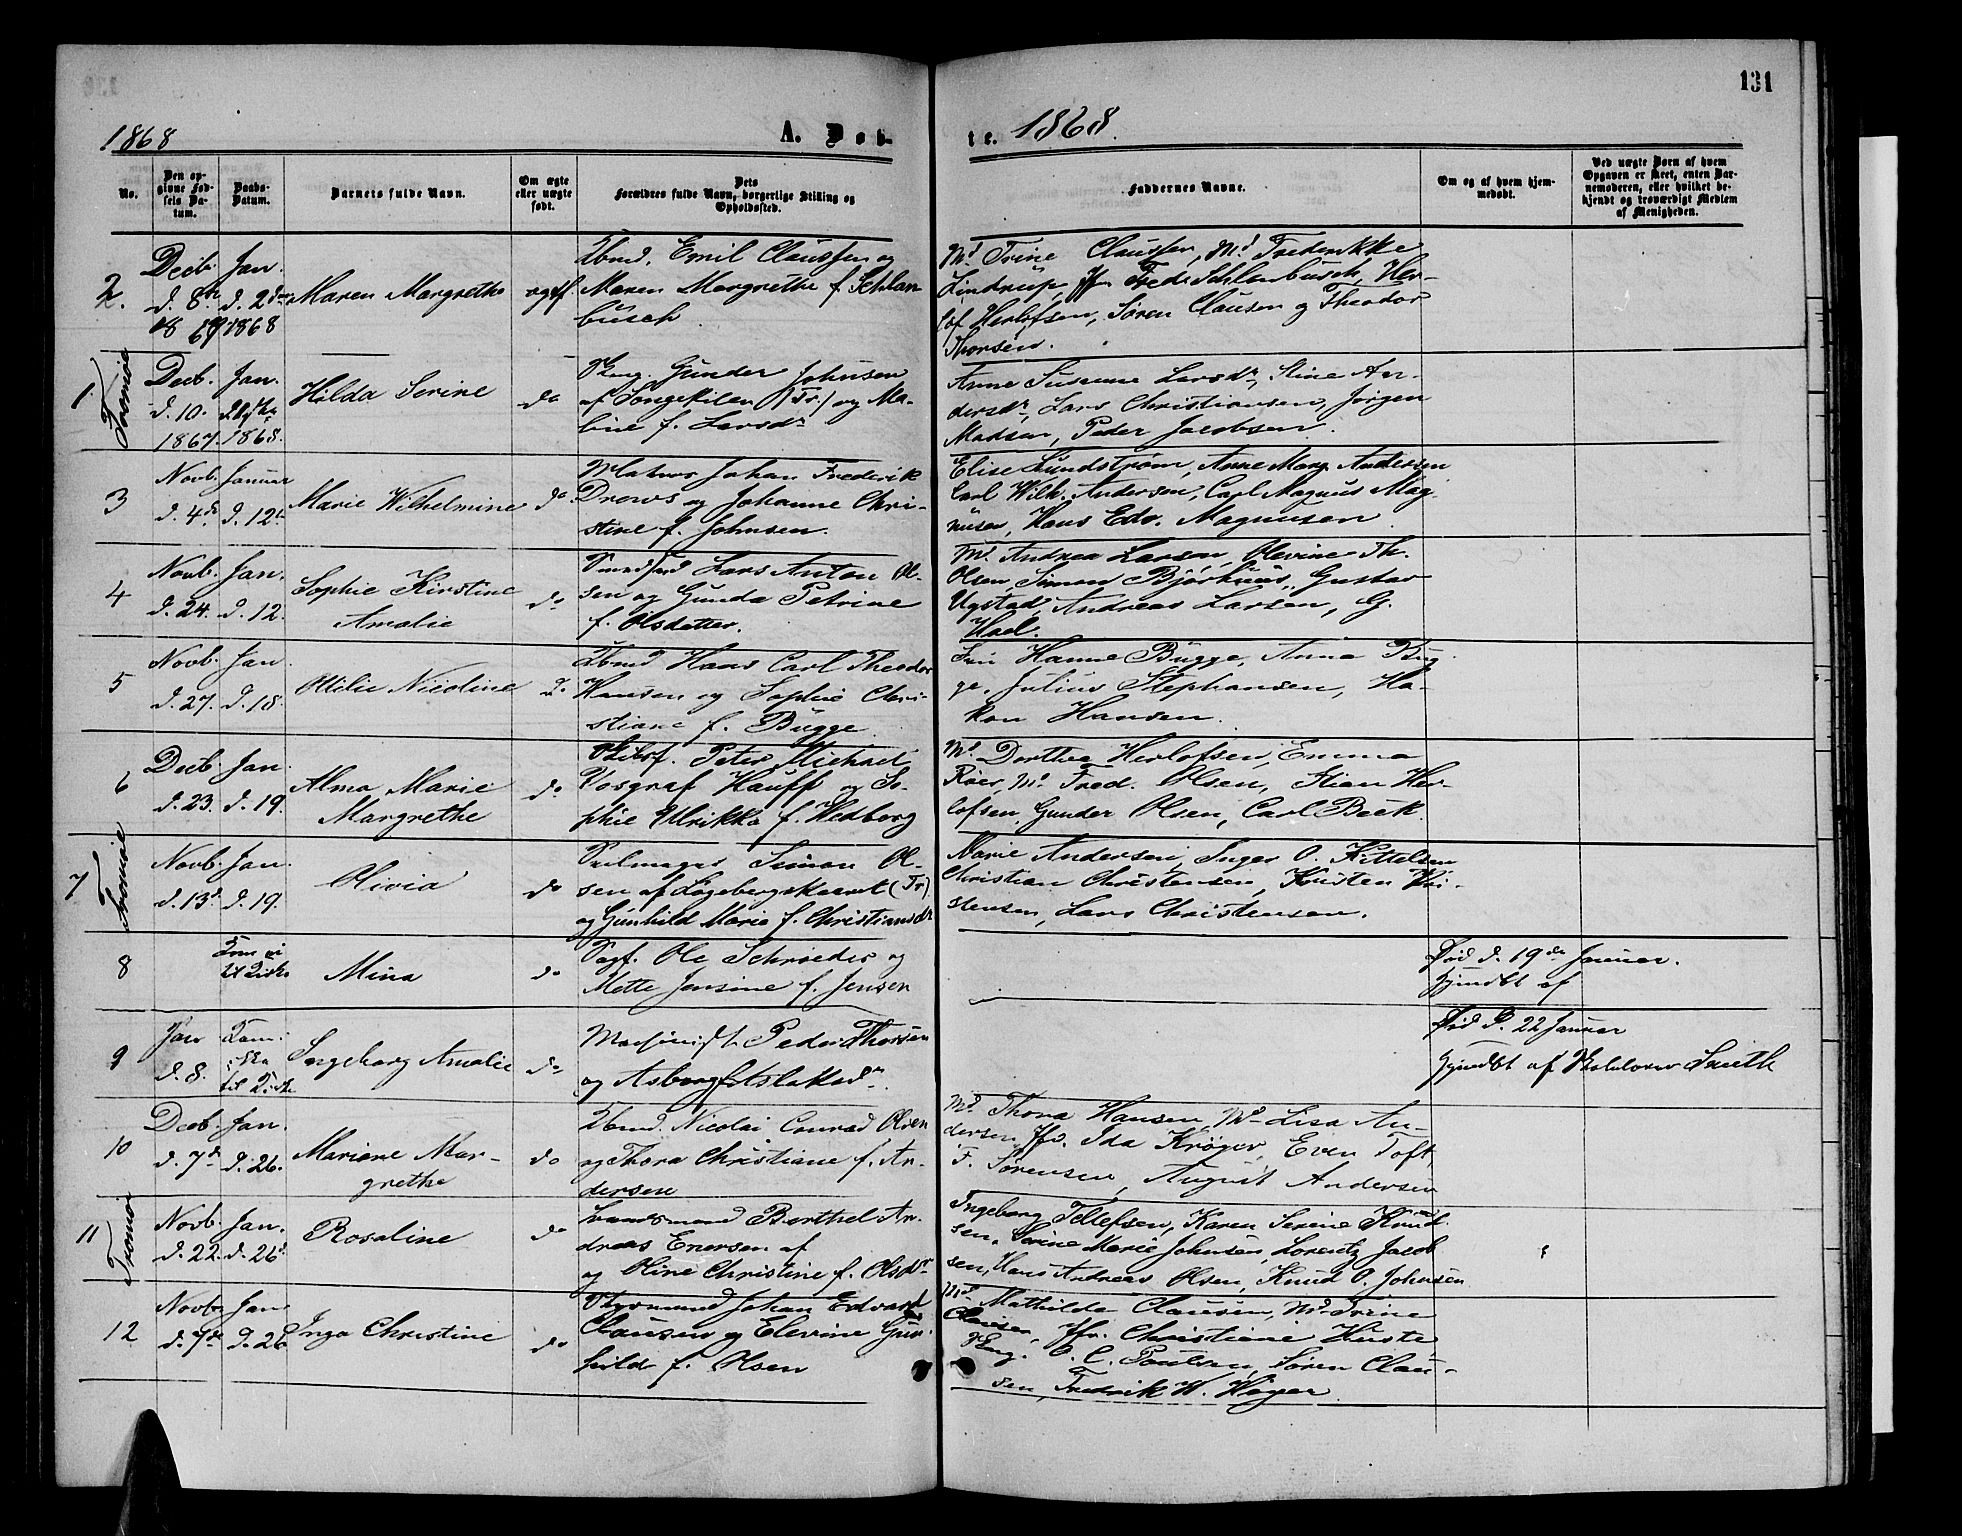 131
1868 A. Døb-
te. 1868.
No.
Den op-
givne Fød-
sels Da-
tum.
Daabs-
Datum.
Barnets fulde Navn.
Om ægte
eller uægte
født.
Dets
Forældres fulde Navn, borgerlige Stilling og
Opholdssted.
Faddernes Navne.
Om og af hvem hjem-
medøbt.
Ved uægte Børn af hvem
Opgaven er skeet, enten Bar-
nemoderen, eller hvilket be-
kjendt og troværdigt Medlem
af Menigheden.
2.
Decb. Jan.
d. 8de d. 2den
1867 1868
Maren Margrethe
ægtef.
Emil Claussen og
Maren Margrethe f. Schlan-
busch.
Md Trine Claussen, Md Fredrikke
Lindrup, Jfr Fred. Schlanbusch, Her-
lof Herlofsen, Søren Clausen og Theodor
Thorsen.
1 Tromøe
Decb. Jan.
d. 10.
1867. 1868.
Hilda Serine
do
Gunder Johnsen
af Songekilen (Tr.) og Ma-
line f. Larsdr
Anne Susanne Larsdr, Stine An-
dersdr, Lars Christiansen, Jørgen
Madsen, Peder Jacobsen.
3
Novb. Januar
d. 4de d. 12te
Marie Wilhelmine
do
Matros Johan Frederik
Drews og Johanne Chri-
stine f. Johnsen.
Elise Lundstrøm, Anne Marg. Andersen
Carl Wilh. Andersen, Carl Magnus Mag-
nusen, Hans Edv. Magnusen
4
Novb. Jan.
d. 24. d. 12.
Sophie Kirstine
Amalie
do
Lars Anton Ol-
sen og Gunda Petrine
f. Olsdatter.
Md Andrea Larsen, Olevine Th.
Olsen, Simon Bjørhuus, Gustav
Ugstad, Andreas Larsen, G.
Hael.
5
Novb. Jan
d. 27. d. 18.
Otilie Nicoline
do
Hans Carl Theodor
Hansen og Sophie Chri-
stiane f. Bugge
Hanne Bugge, Anna Bug-
ge, Julius Stephansen, Ha-
kon Hansen.
6
Decb. Jan
d. 23. d. 19.
Alma Marie
Margrethe
do
Skibsf. Peter Michael
Vosgraf Hauff og So-
phie Ulrikka f. Hedborg
Md Dorthea Herlofsen, Emma
Røer, Md Fred. Olsen, Stian Her-
lofsen, Gunder Olsen, Carl Beck.
7 Tromøe
Novb. Jan.
d. 13de d. 19.
Olivia
do
Seilmager Simon Ol-
sen af (Tr)
og Gunhild Marie f. Christiansdr
Marie Andersen, Inger O. Kittelsen
Christian Christensen, Kristen Kri-
stensen, Lars Christensen.
8
Kom ei
til Kirke
Mina
do
Ole Schrøeder og
Mette Jensine f. Jensen
Død d. 19de Januar.
hjemdbt af
9
Jan
d. 8.
Kom
ikke
til Kirke
Ingeborg Amalie
do
Peder Thorsen
og Asborg Aslaksdr.
Død d. 22 Januar
hjemdbt af Smith
10
Decb. Jan.
d. 7de d. 26.
Mariane Mar-
grethe
do
Nicolai Conrad Olsen
og Thora Christiane f. An-
dersen
Md Thora Hansen, Md Lisa An-
dersen, Jfr. Ida Krøger, Even Toft,
F. Sørensen, August Andersen
11 Tromøi
Novb. Jan.
d. 22. d. 26.
Rosaline
do
Berthel An-
dreas Enersen af
og Oline Christine f. Olsdr
Ingeborg Tellefsen, Karen Serine Knud-
sen, Serine Marie Johnsen, Lorentz Jacob-
sen, Hans Andreas Olsen, Knud O. Johnsen
12
Novb Jan
d. 7de d. 26
Inga Christine
do
Styrmand Johan Edvard
Clausen og Elevine Gun-
hild f. Olsen
Md Mathilde Clausen, Md Trine
Clausen, Jfr. Christiane Huste
O. C. Poulsen, Søren Clau-
sen, Fredrik W. Høyer.